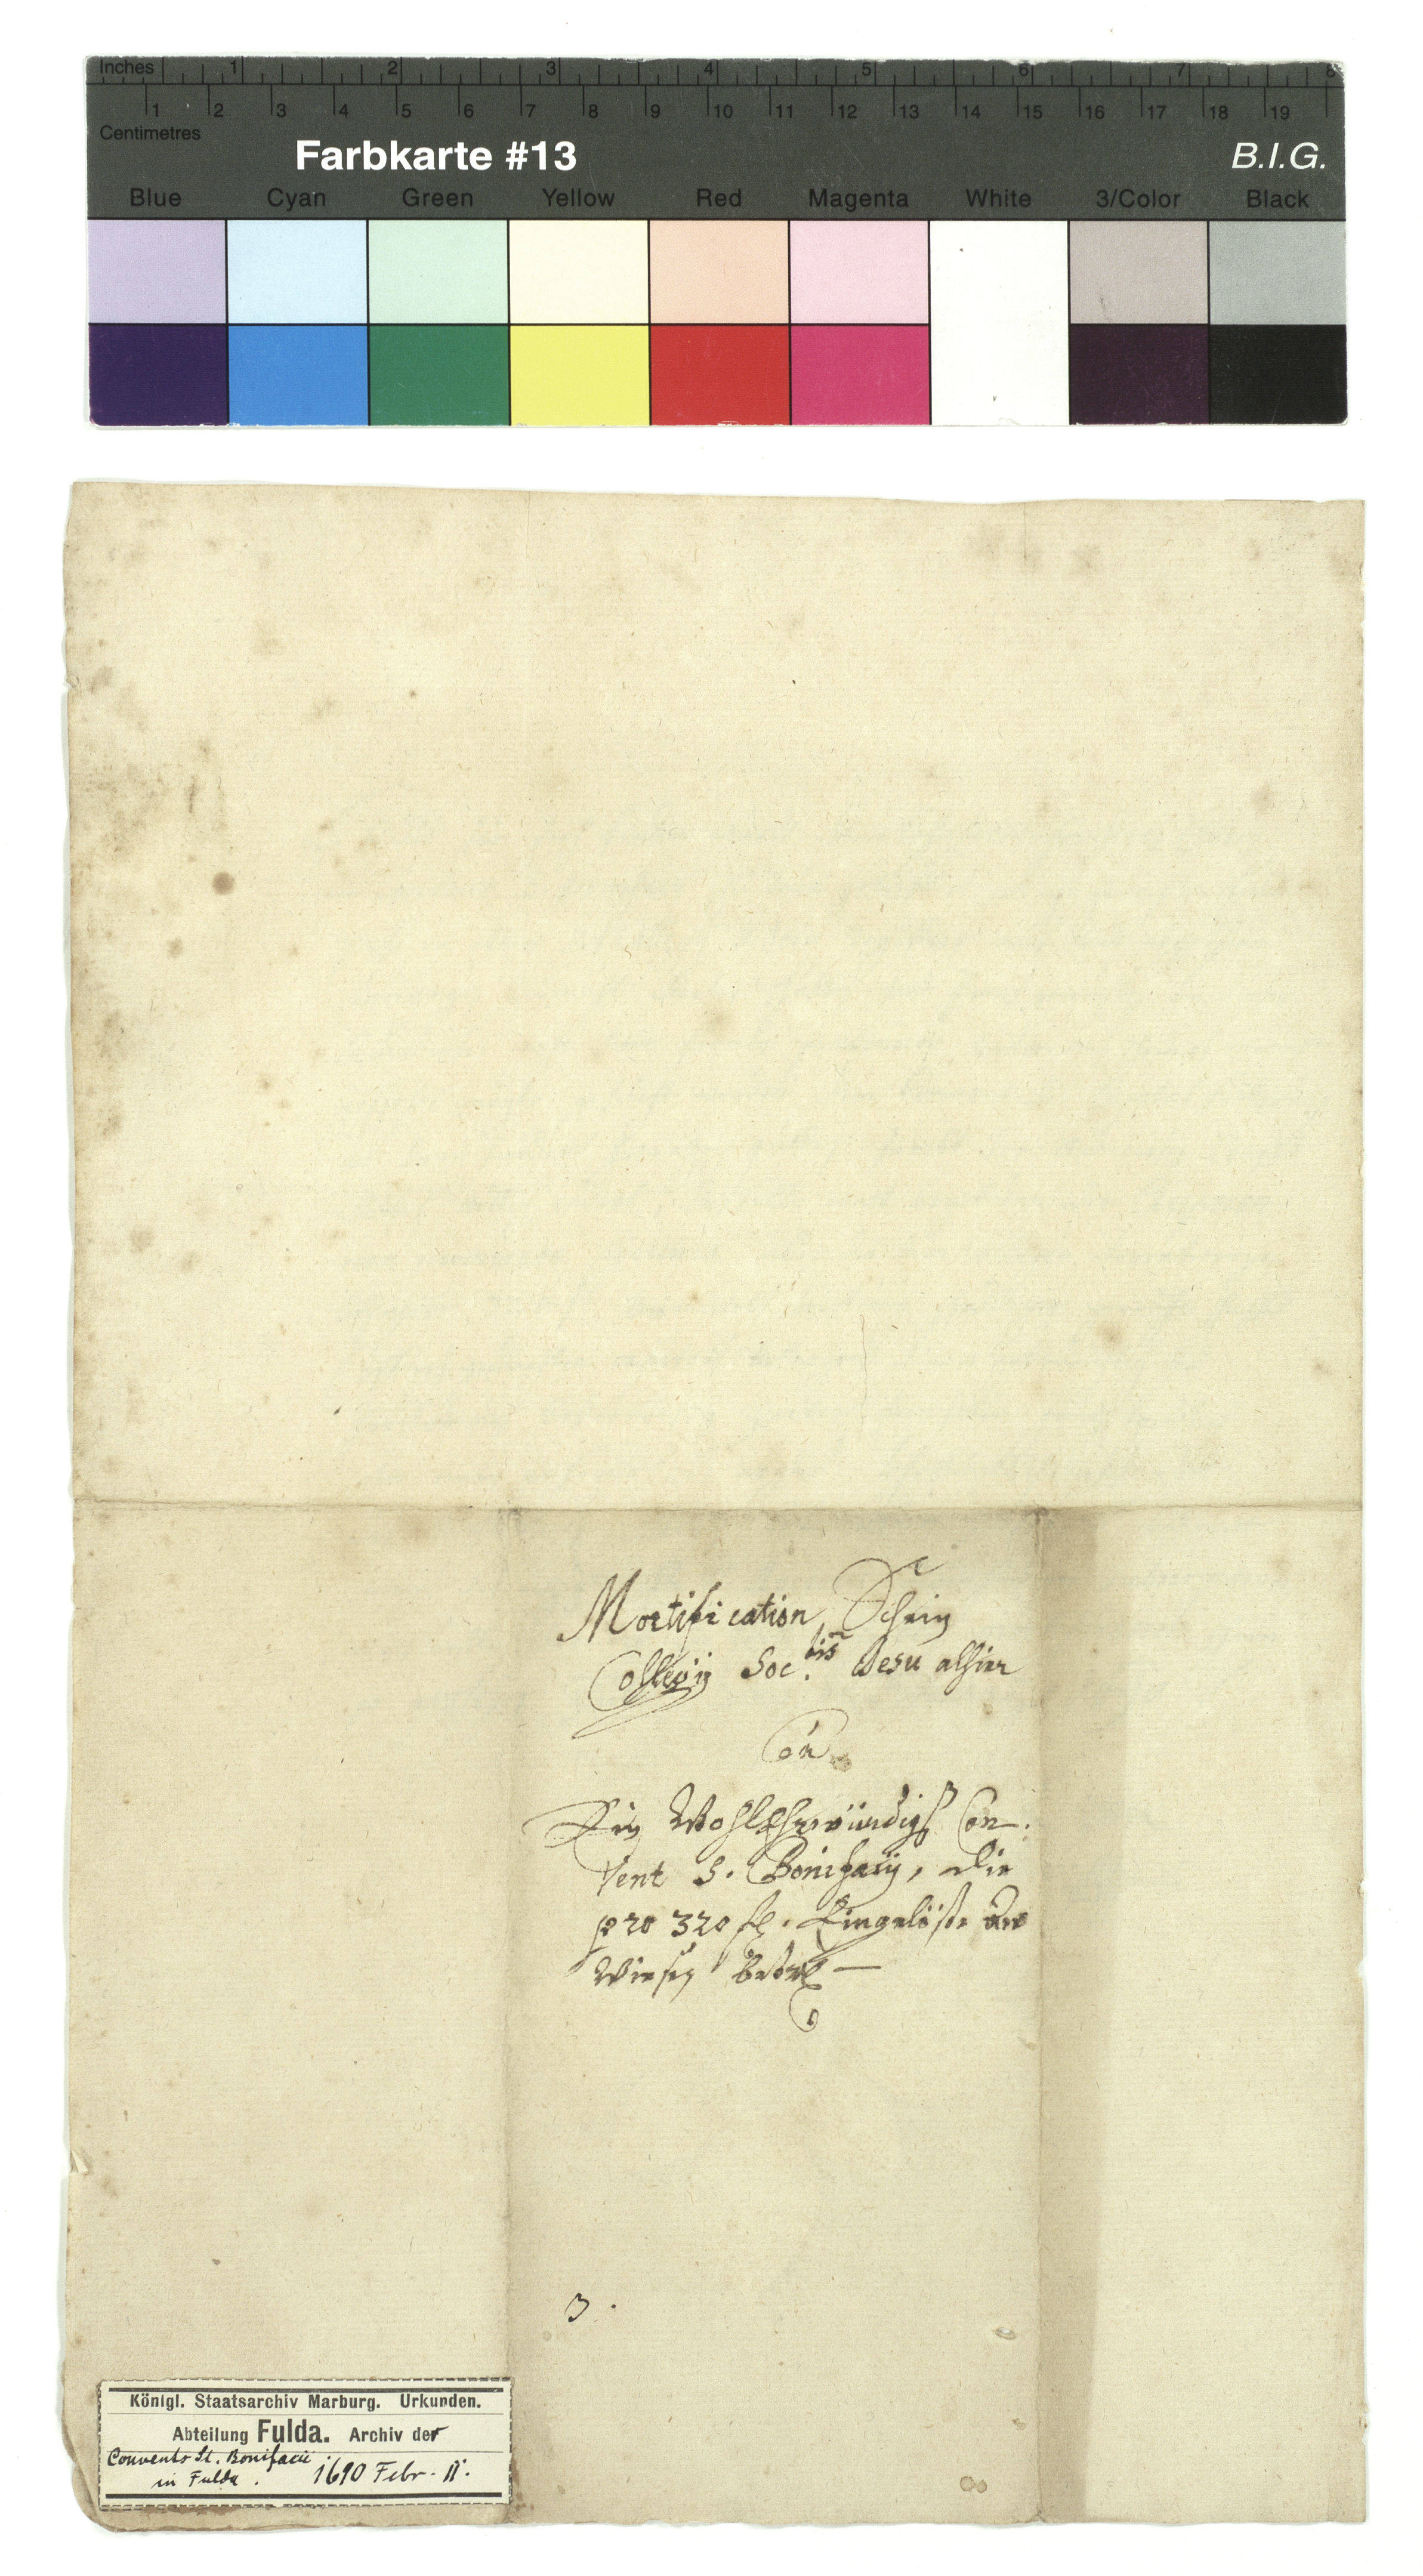 Inches 1 2 3 4 5 6 7 8
1 2 3 4 5 6 7 8 9 10 11 12 13 14 15 16 17 18 19
Centimetres
Farbkarte #13 B.I.G.
Blue Cyan Green Yellow Red Magenta White 3/Color Black
Mortification Schein
Collegij Soc.tis Jesu alhier
Ein WohlEhrwürdigs Con-
vent S. Bonifacij, die
pro 320 fl. Eingelöste
Wiesen betrl
3.
Königl. Staatsarchiv Marburg. Urkunden.
Abteilung Fulda. Archiv der
Convents St. Bonifacii
in Fulda. 1690 Febr. 11.